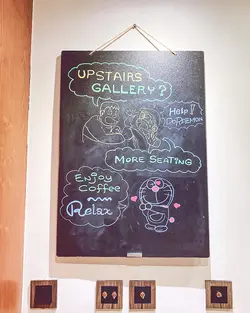 UPSTAIRS
GALLERY?
Help!!
DORAEMON
MORE SEATING
ENJOY
COFFEE
Relax